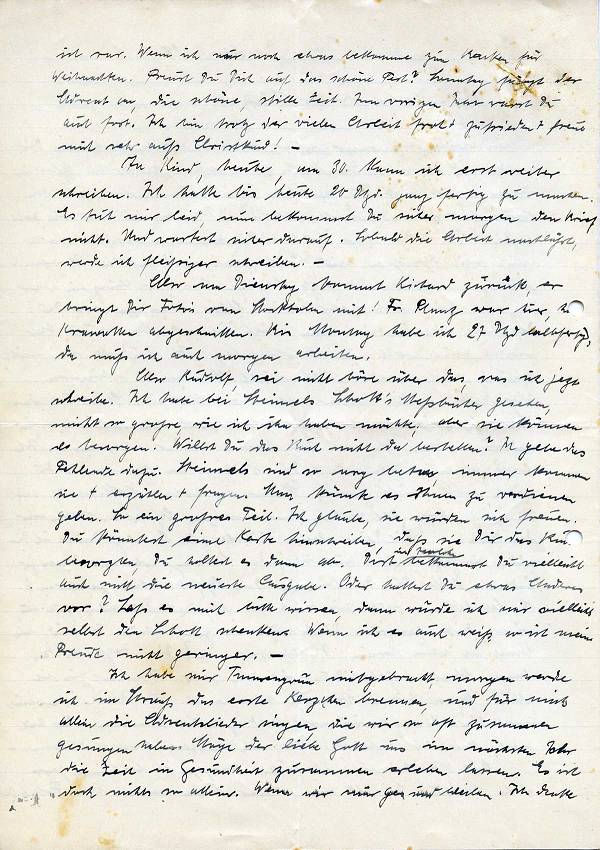 ist war. Wenn ich nur noch etwas bekomme zum Backen für
Weihnachten. Freust Du Dich auf das schöne Fest? Sonntag fängt der
Advent an, die schöne, stille Zeit. Im vorigen Jahr warst Du
auch fort. Ich bin trotz der vielen Arbeit froh + zufrieden + freue
mich sehr aufs Christkind! –
Ja Kind, heute, am 30. kann ich erst weiter
schreiben. Ich hatte bis heute 20 Dzd. ganz fertig zu machen.
Es tut mir leid, nun bekommst Du sicher morgen den Brief
nicht. Und wartest sicher darauf. Sobald die Arbeit nachläßt,
werde ich fleißiger schreiben. –
Also am Dienstag kommt Richard zurück, er
bringt Dir Fotos von Stockholm mit! Fr. war hier, hat
Krawatten abgeschnitten. Bis Montag habe ich 27 Dzd halbfertig,
da muß ich auch morgen arbeiten.
Also Rudolf, sei nicht böse über das, was ich jetzt
schreibe. Ich habe bei Steimels Schott's Meßbücher gesehen,
nicht so große, wie ich sie haben möchte, aber sie können
es besorgen. Willst Du das Buch nicht da bestellen? Ich gebe das
Fehlende dazu. Steimels sind so arg nett, immer kommen
sie + erzählen + fragen. Man könnte es Ihnen zu verdienen
geben. So ein großes Teil. Ich glaube, sie würden sich freuen.
Du könntest eine Karte hinschreiben, daß sie Dir das Buch
besorgten, Du holtest es dann ab. Dort bekommst Du vielleicht
auch nicht die neueste Ausgabe. Oder hattest Du etwas Anderes
vor? Laß es mich bitte wissen, dann würde ich mir vielleicht
selbst den Schott schenken. Wenn ich es auch weiß, so ist meine
Freude nicht geringer. –
Ich habe mir Tannengrün mitgebracht, morgen werde
ich im Strauß das erste Kerzchen brennen, und für mich
allein die Adventslieder singen, die wir so oft zusammen
gesungen haben. Möge der liebe Gott uns im nächsten Jahr
die Zeit in Gesundheit zusammen erleben lassen. Es ist
doch nichts so allein. Wenn wir nur gesund bleiben. Ich denke